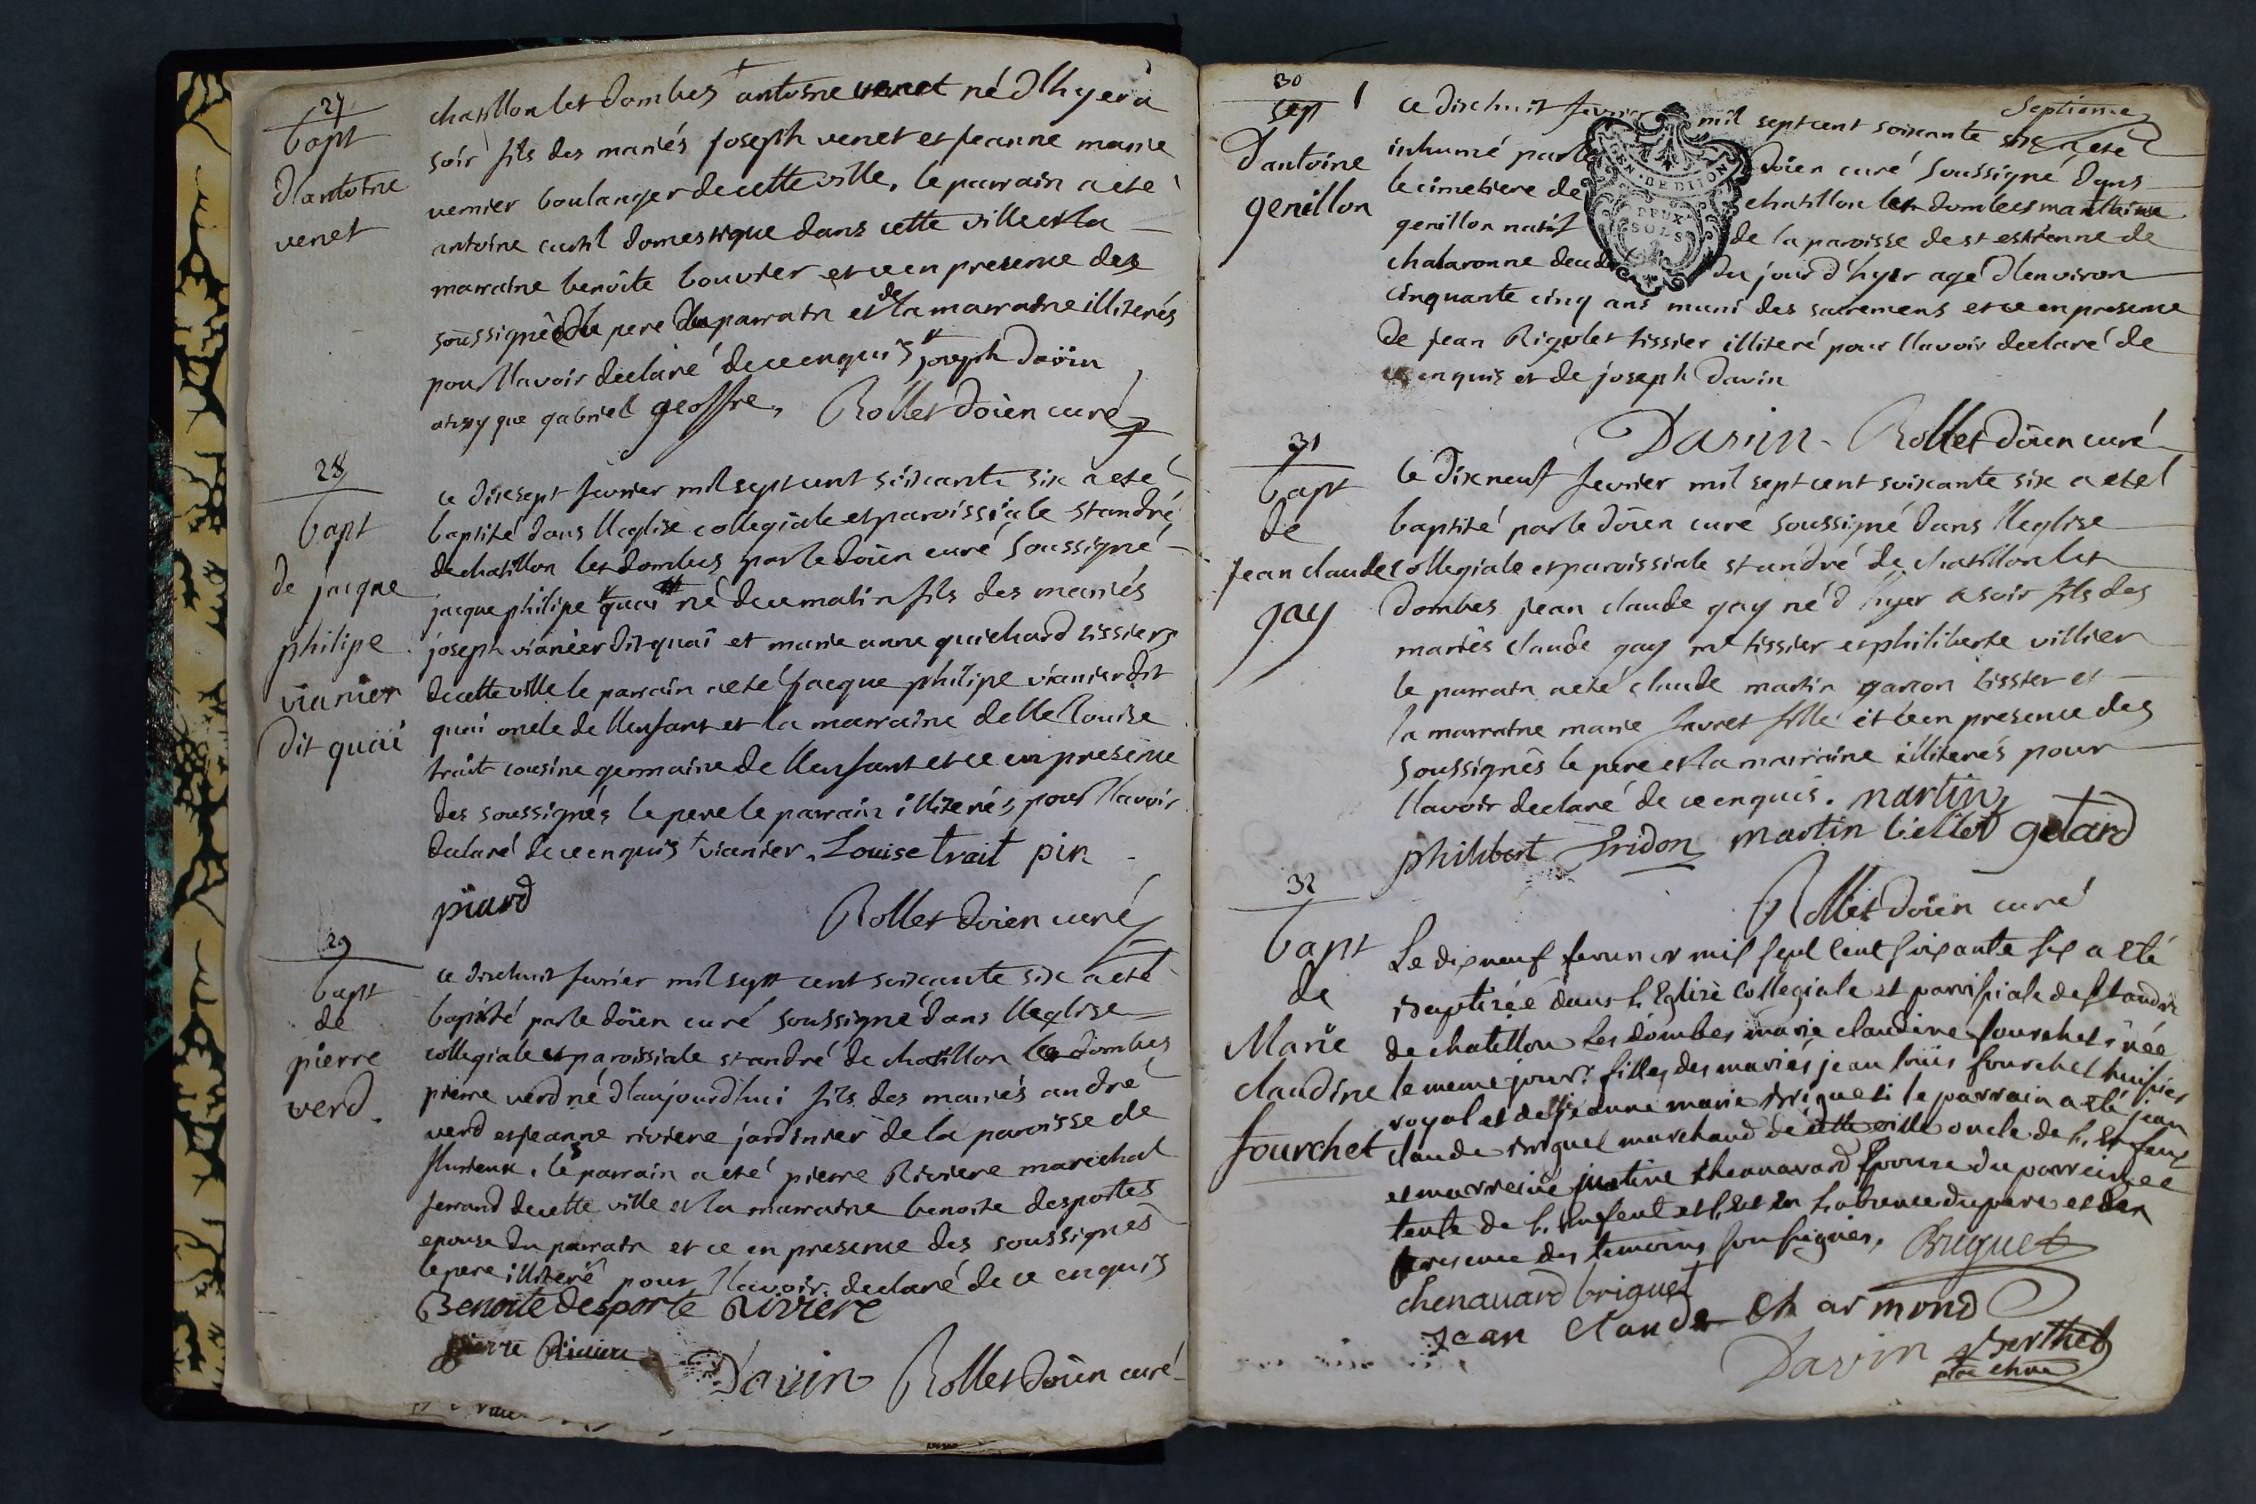 27
bapt
d'antoine
venet
chatillon les dombes antoine venet né d'hyer a
soir fils des mariés joseph venet et jeanne marie
vernier boulanger de cette ville, le parrain a eté
antoine curtil domestique dans cette ville et la
marraine benoite bouvier et ce en presence des
soussignés le pere du parrain et de la marraine illiterés
pour l'avoir declaré de ce enquis joseph davin
aussy que gabriel geoffre, Rollet doien curé
28
bapt
de jacque
philipe
vianier
dit quai
ce dixsept fevrier mil sept cent soixante six a eté
baptisé dans l'eglise collegiale et paroissiale st andré
de chatillon les dombes par le doien curé soussigné
jacque philipe quai né de ce matin fils des mariés
joseph vianier dit quai et marie anne guichard tissiers
de cette ville le parrain a eté jacque philipe vianier dit
quai oncle de l'enfant et la marraine delle louise
trait cousine germaine de l'enfant et ce en presence
des soussignés le pere le parrain illiterés pour l'avoir
declaré de ce enquis vianier. Louise trait pin
piard
Rollet doien curé
29
bapt
de
pierre
verd
ce dixhuit fevrier mil sept cent soixante six a eté
baptisé par le doien curé soussigné dans l'eglise
collegiale et paroissiale st andré de chatillon les dombes
pierre verd né d'aujourd'hui fils des mariés andré
verd et jeanne riviere jardinier de la paroisse de
flurieux, le parrain a eté pierre Riviere marechal
ferrand de cette ville et la marraine benoite desportes
epouse du parrain et ce en presence des soussignés
le pere illiteré pour l'avoir declaré de ce enquis
Benoite desporte Riviere
pierre Riviere
Davin Rollet doien curé
30
sep
d'antoine
genillon
Septieme
ce dixhuit fevrier mil sept cent soixante six a eté
inhumé par le doien curé soussigné dans
le cimetiere de chatillon les dombes
genillon natif de la paroisse de st estienne de
chalaronne decedé du jour d'hyer agé d'environ
cinquante cinq ans muni des sacremens et ce en presence
de jean Rigolet tissier illiteré pour l'avoir declaré de
ce enquis et de joseph davin
Davin - Rollet doien curé
31
bapt
de
jean claude
gay
le dixneuf fevrier mil sept cent soixante six a eté
baptisé par le doien curé soussigné dans l'eglise
collegiale et paroissiale st andré de chatillon les
dombes jean claude gay né d'hyer a soir fils des
mariés claude gay mt tissier et philiberte villier
le parrain a eté claude martin garcon tissier et
la marraine marie favret fille et ce en presence des
soussignés le pere et la marraine illiterés pour
l'avoir declaré de ce enquis. martin
philibert fridon martin gelard
Rollet doien curé
32
bapt
de
Marie
claudine
fourchet
Le dixneuf fevrier mil sept cent soixante six a eté
Baptisée dans l'Eglise collegiale et paroissiale de st andré
de chatillon les dombes marie claudine fourchet née
le meme jour fille des mariés jean louis fourchet huissier
royal et de jeanne marie briguet le parrain a eté jean
claude briguet marchand de cette ville oncle de l'enfent
et marreine justine chenavard epouse du parrein et
tente de l'enfent et ce en l'absence du pere et en
presence des temoins soussignés, Briguet
chenavard briguet
jean claude charmond
Davin Berthet
ptre chne